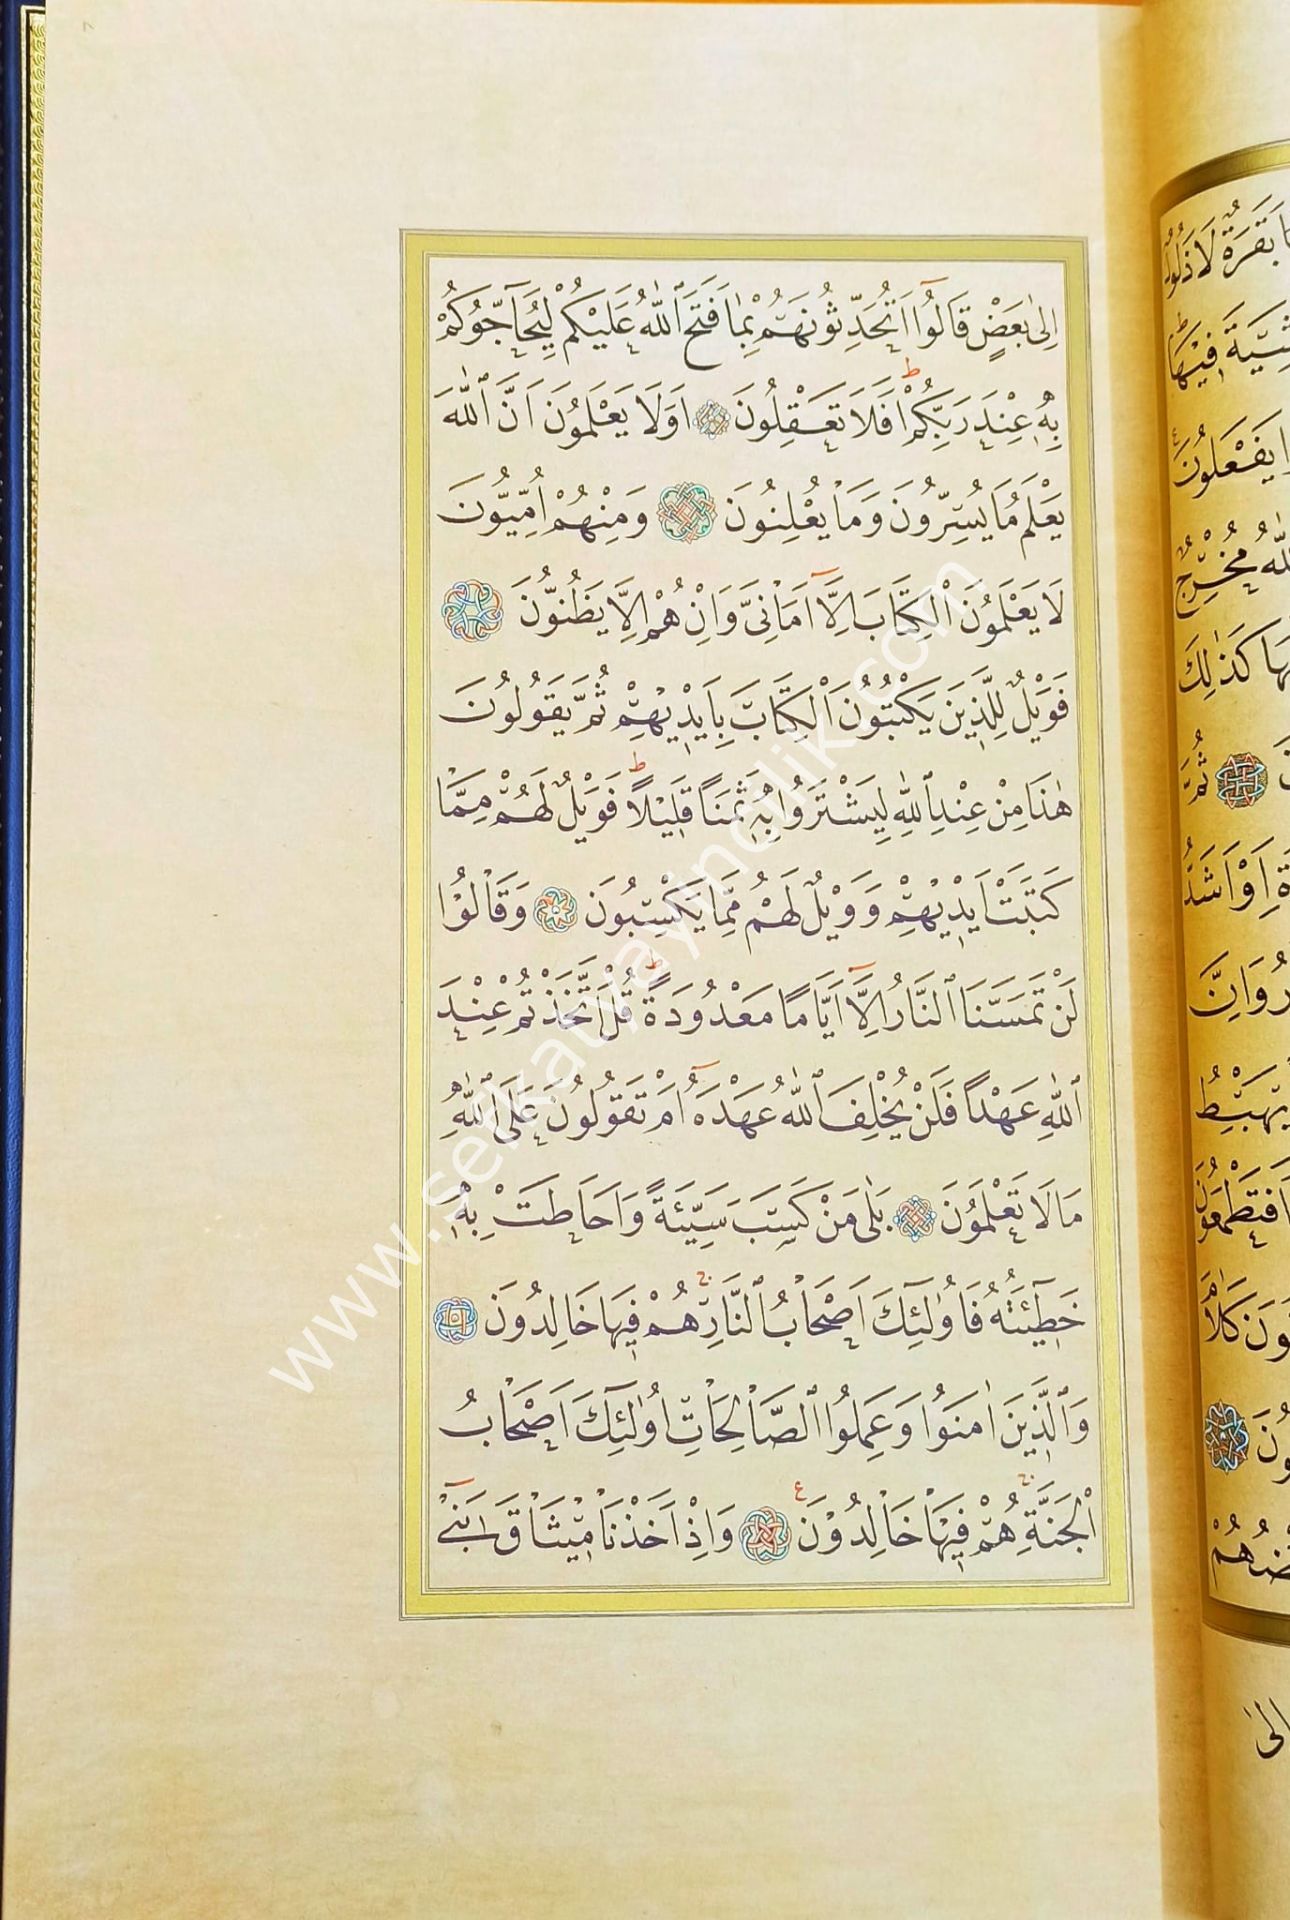 اِلٰى بَعْضٍ قَالُٓوا اَتُحَدِّثُونَهُمْ بِمَا فَتَحَ ٱللّٰهُ عَلَيْكُمْ لِيُحَٓاجُّوكُمْ
بِهٖ عِنْدَ رَبِّكُمْ ط اَفَلَا تَعْقِلُونَ اَوَلَا يَعْلَمُونَ اَنَّ ٱللّٰهَ
يَعْلَمُ مَا يُسِرُّونَ وَمَا يُعْلِنُونَ وَمِنْهُمْ اُمِّيُّونَ
لَا يَعْلَمُونَ ٱلْكِتَابَ اِلَّٓا اَمَانِىَّ وَاِنْ هُمْ اِلَّا يَظُنُّونَ
فَوَيْلٌ لِلَّذِينَ يَكْتُبُونَ ٱلْكِتَابَ بِاَيْدِيهِمْ ثُمَّ يَقُولُونَ
هٰذَا مِنْ عِنْدِ ٱللّٰهِ لِيَشْتَرُوا بِهٖ ثَمَنًا قَلِيلًا ط فَوَيْلٌ لَهُمْ مِمَّا
كَتَبَتْ اَيْدِيهِمْ وَوَيْلٌ لَهُمْ مِمَّا يَكْسِبُونَ وَقَالُوا
لَنْ تَمَسَّنَا ٱلنَّارُ اِلَّٓا اَيَّامًا مَعْدُودَةً ط قُلْ اَتَّخَذْتُمْ عِنْدَ
ٱللّٰهِ عَهْدًا فَلَنْ يُخْلِفَ ٱللّٰهُ عَهْدَهُٓ اَمْ تَقُولُونَ عَلَى ٱللّٰهِ
مَا لَا تَعْلَمُونَ بَلٰى مَنْ كَسَبَ سَيِّئَةً وَاَحَاطَتْ بِهٖ
خَطِٓيئَتُهُ فَاُولٰٓئِكَ اَصْحَابُ ٱلنَّارِ هُمْ فِيهَا خَالِدُونَ
وَٱلَّذِينَ اٰمَنُوا وَعَمِلُوا ٱلصَّالِحَاتِ اُولٰٓئِكَ اَصْحَابُ
ٱلْجَنَّةِ هُمْ فِيهَا خَالِدُونَ ع وَاِذْ اَخَذْنَا مِيثَاقَ بَنِٓى
بَقَرَةٌ لَا ذَلُولٌ
شِيَةَ فِيهَا ط
يَفْعَلُونَ
ٱللّٰهُ مُخْرِجٌ
كَذٰلِكَ
ثُمَّ
اَوْ اَشَدُّ
وَاِنَّ
يَهْبِطُ
اَفَتَطْمَعُونَ
كَلَامَ
اِلٰى
www.serkanyayindilik.com